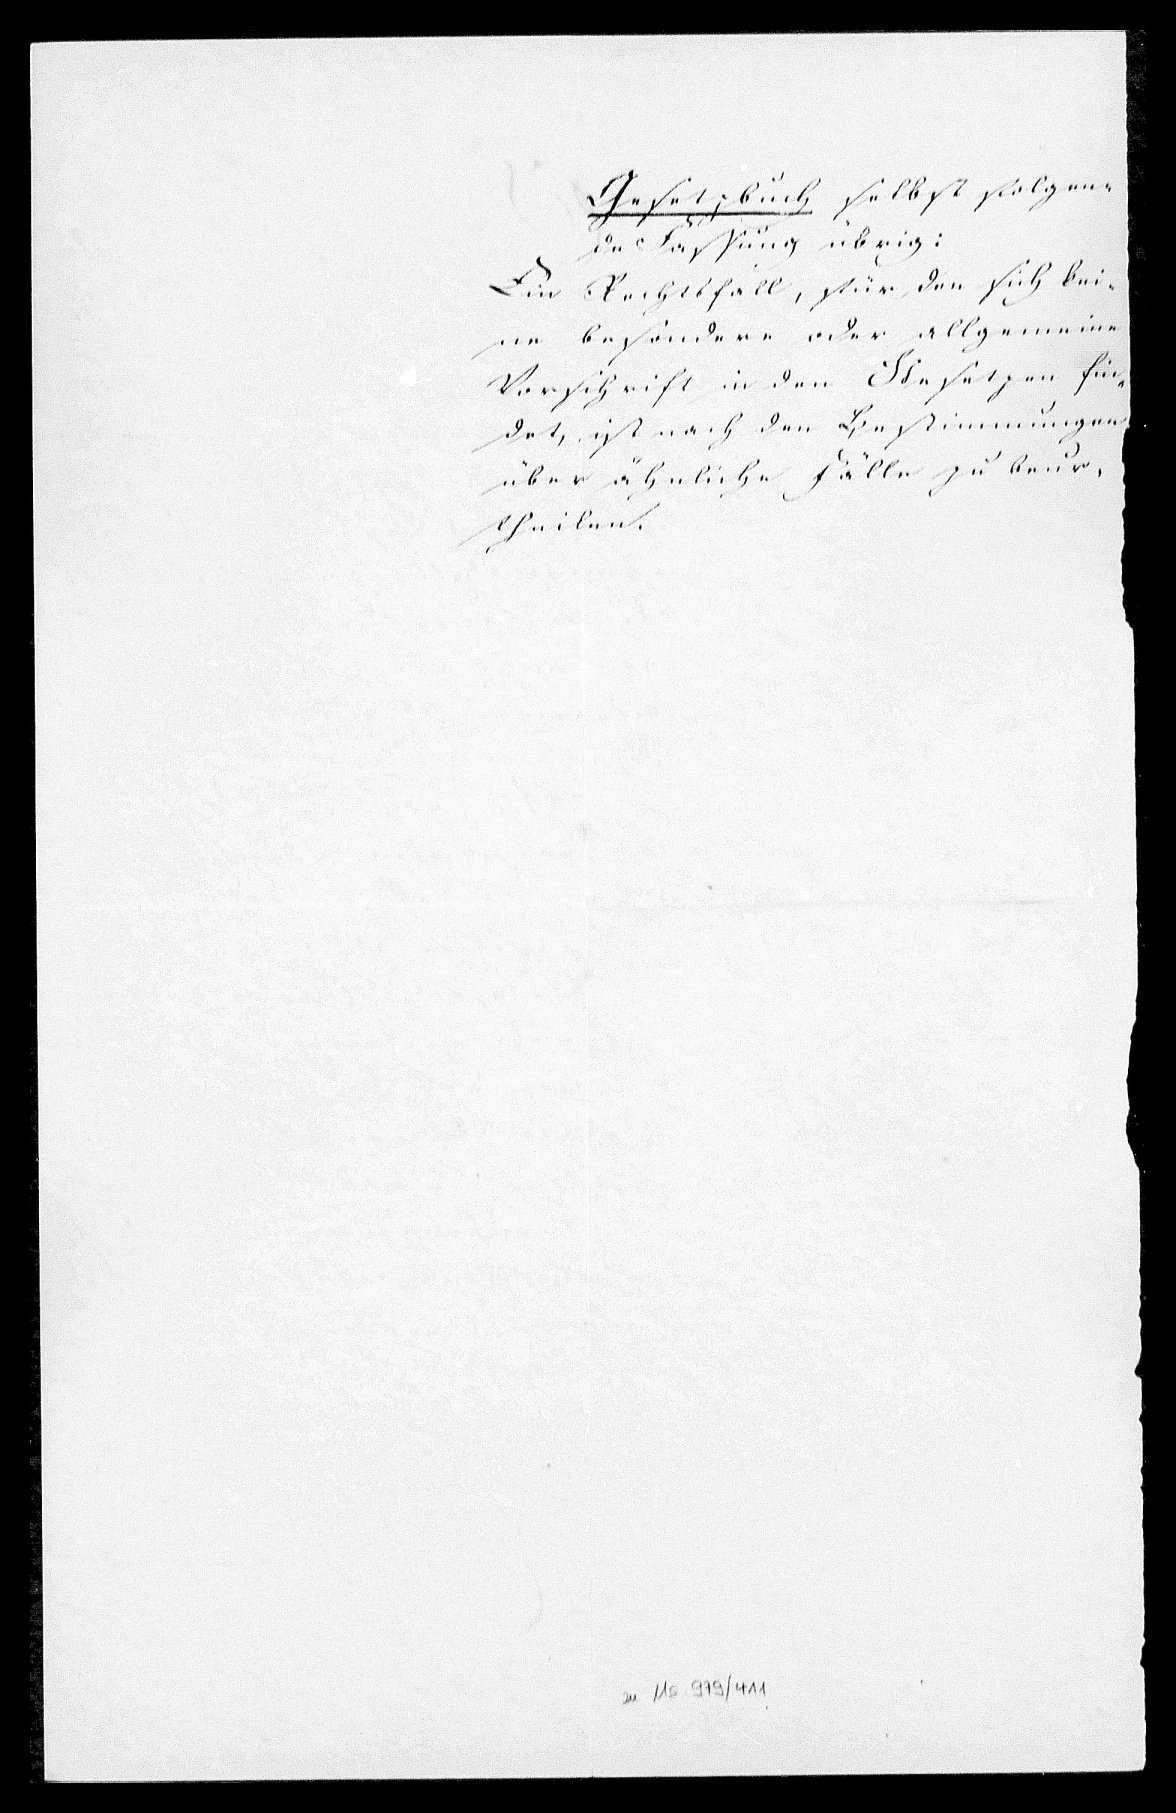 Gesetzbuch selbst folgen-
de Fassung übrig:
Ein Rechtsfall, für den sich kei-
ne besondere oder allgemeine
Vorschrift in den Gesetzen fin-
det, ist nach den Bestimmungen
über ähnliche Fälle zu beur-
theilen.
zu 979/411